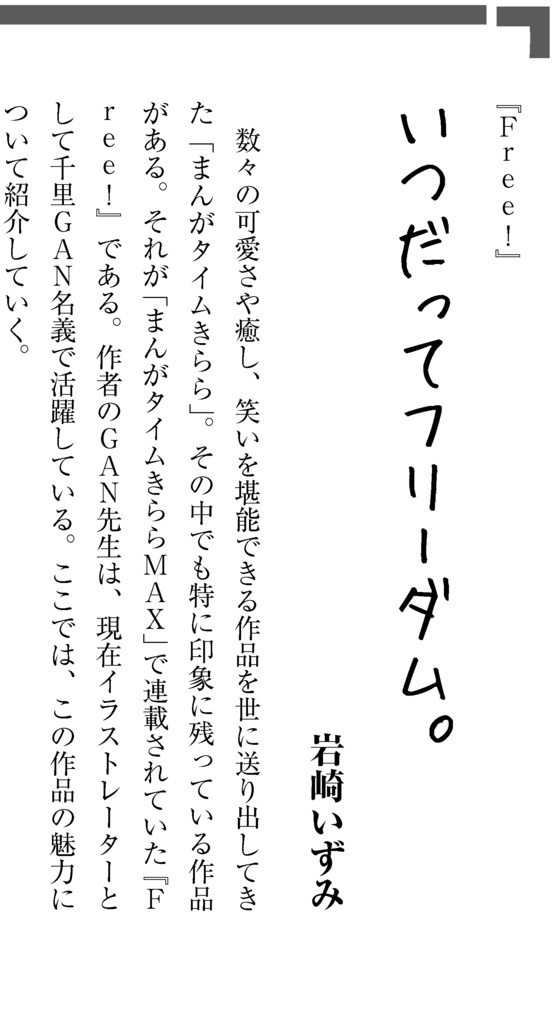 『Free!』
いつだってフリーダム。
岩崎いずみ
数々の可愛さや癒し、笑いを堪能できる作品を世に送り出してき
た「まんがタイムきらら」。その中でも特に印象に残っている作品
がある。それが「まんがタイムきららMAX」で連載されていた『F
ree!』である。作者のGAN先生は、現在イラストレーターと
して千里GAN名義で活躍している。ここでは、この作品の魅力に
ついて紹介していく。